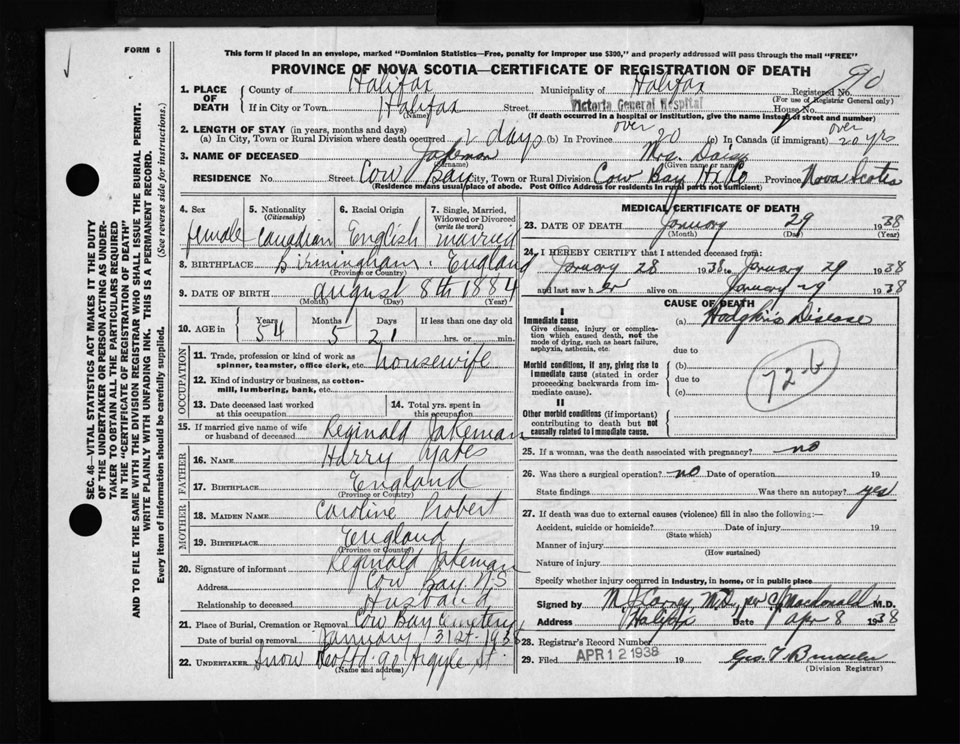 FORM 6
This form if placed in an envelope, marked "Dominion Statistics—Free, penalty for improper use $300," and properly addressed will pass through the mail "FREE"
PROVINCE OF NOVA SCOTIA—CERTIFICATE OF REGISTRATION OF DEATH
90
SEC. 46—VITAL STATISTICS ACT MAKES IT THE DUTY
OF THE UNDERTAKER OR PERSON ACTING AS UNDER-
TAKER TO OBTAIN ALL THE PARTICULARS REQUIRED
IN THE "CERTIFICATE OF REGISTRATION OF DEATH"
AND TO FILE THE SAME WITH THE DIVISION REGISTRAR WHO SHALL ISSUE THE BURIAL PERMIT.
WRITE PLAINLY WITH UNFADING INK. THIS IS A PERMANENT RECORD.
Every item of information should be carefully supplied. (See reverse side for instructions.)
1. PLACE OF DEATH
County of Halifax Municipality of Halifax Registered No.
(For use of Registrar General only)
If in City or Town Halifax Street Victoria General Hospital House No.
(Name) (If death occurred in a hospital or institution, give the name instead of street and number)
2. LENGTH OF STAY (in years, months and days)
(a) In City, Town or Rural Division where death occurred 2 days (b) In Province over 20 (c) In Canada (if immigrant) over 20 yrs
3. NAME OF DECEASED Jakeman Mrs. Daisy
(Surname) (Given name or names)
RESIDENCE No. Street Cow Bay City, Town or Rural Division Cow Bay Hfx Co Province Nova Scotia
(Residence means usual place of abode. Post Office Address for residents in rural parts not sufficient)
4. Sex female
5. Nationality (Citizenship) Canadian
6. Racial Origin English
7. Single, Married, Widowed or Divorced (write the word) married
8. BIRTHPLACE Birmingham England
(Province or Country)
9. DATE OF BIRTH august 8th 1884
(Month) (Day) (Year)
10. AGE in Years 54 Months 5 Days 21 If less than one day old hrs. or min.
OCCUPATION
11. Trade, profession or kind of work as spinner, teamster, office clerk, etc. housewife
12. Kind of industry or business, as cotton-mill, lumbering, bank, etc.
13. Date deceased last worked at this occupation
14. Total yrs. spent in this occupation
15. If married give name of wife or husband of deceased Reginald Jakeman
FATHER
16. NAME Harry Yates
17. BIRTHPLACE England
(Province or Country)
MOTHER
18. MAIDEN NAME Caroline Robert
19. BIRTHPLACE England
(Province or Country)
20. Signature of informant Reginald Jakeman
Address Cow Bay N.S
Relationship to deceased Husband
21. Place of Burial, Cremation or Removal Cow Bay Cemetery
Date of burial or removal January 31st 1938
22. UNDERTAKER Snow 90 Argyle St.
(Name and address)
MEDICAL CERTIFICATE OF DEATH
23. DATE OF DEATH January 29 1938
(Month) (Day) (Year)
24. I HEREBY CERTIFY that I attended deceased from:
January 28 1938 to January 29 1938
and last saw her alive on January 29 1938
CAUSE OF DEATH
I
Immediate cause (a) Hodgkin's Disease
Give disease, injury or complication which caused death, not the mode of dying, such as heart failure, asphyxia, asthenia, etc.
due to
Morbid conditions, if any, giving rise to immediate cause (stated in order proceeding backwards from immediate cause). (b)
due to
(c)
72-b
II
Other morbid conditions (if important) contributing to death but not causally related to immediate cause.
25. If a woman, was the death associated with pregnancy? no
26. Was there a surgical operation? no Date of operation 19
State findings Was there an autopsy? yes
27. If death was due to external causes (violence) fill in also the following:—
Accident, suicide or homicide? Date of injury 19
(State which)
Manner of injury
(How sustained)
Nature of injury
Specify whether injury occurred in industry, in home, or in public place
Signed by M J Carney, M.D., per C J Macdonald M.D.
Address Halifax Date Apr 8 1938
28. Registrar's Record Number
29. Filed APR 12 1938 19 Geo. T.
(Division Registrar)